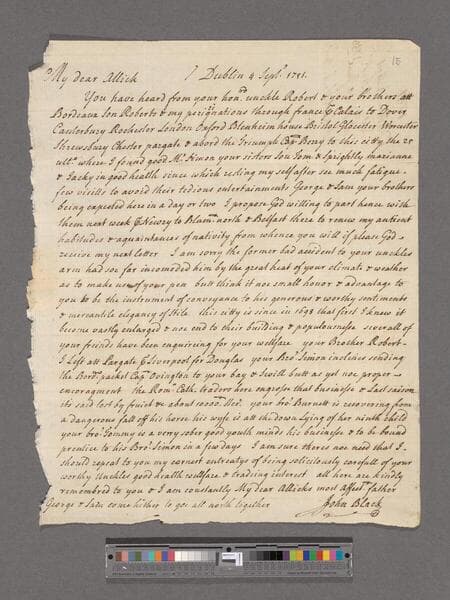 15
My dear Allick Dublin 4 Sept. 1751.
You have heard from your hond. unckle Robert & your brothers att
Bordeaux Son Roberts & my through france Calais to Dover
Canterbury Rochester London Oxford Blenheim house Bristol Glocester Worcester
Shrewsbury Chester pargate & abord the Triumph Capn. to this citty the 22
ullo. where I found good Mrs. your sisters Sou Tom & sprightly marianne
& Jacky in good health since which resting my self after see much fatigue
few visitts to avoid their tedious entertainments George & Sam your brothers
being expected here in a day or two I propose God willing to part hence with
them next week Newry to north & Belfast there to renew my antient
habitudes & aquaintances of nativity from whence you will if please God
receive my next letter I am sorry the former bad accident to your unckles
arm had soe far incomoded him by the great heat of your climate & weather
as to make use of your pen but think it noe small honor & advantage to
you to be the instrument of conveyance to his generous & worthy sentiments
& mercantile elegancy of stile this citty is since in 1698 that first I knew it
become vastly enlarged & noe end to their building & populousness severall of
your friends have been enquireing for your wellfare your Brother Robert
I Left att Pargate Liverpool for Douglas your Bror. Simon inclines sending
the packet Capn. Ovington to your bay & I will butt as yet noe proper
encoragment the Romn. Cath. traders here engross that business & Last saison
its said lost by fruit &c about 10000. your bror. Burnett is recovering from
a dangerous fall off his horse his wife is att the down Lying of her ninth child
your bror. Tommy is a very sober good youth minds his business & to be bound
prentice to his Bror. Simon in a few days I am sure theres noe need that I
should repeat to you my earnest entreatys of being soliciously carefull of your
worthy Unckles good health wellfare & trading interest all here are kindly
remembred to you & I am constantly My dear Allicks most affectt. father
George & Sam come hither to goe all north together John Black